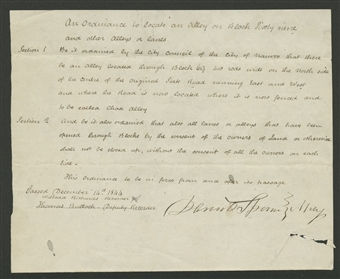 An Ordinance to locate an alley on Block Sixty nine
and other Alleys or lanes
Section 1 Be it ordained by the City Council of the City of Nauvoo that there
be an alley located through Block 69 two rods wide on the North side
of the Centre of the original State Road running East and West
and where the Road is now located where it is now fenced and
to be called Chase Alley
Section 2 And be it also ordained that also all lanes or alleys that have been
opened through Blocks by the consent of the owners of Land or otherwise
shall not be closed up, without the consent of all the owners on each
line.
This Ordinance to be in force from and after its passage.
Passed December 14th 1844
Willard Richards Recorder
Thomas Bullock Deputy Recorder
Daniel Spencer Mayor